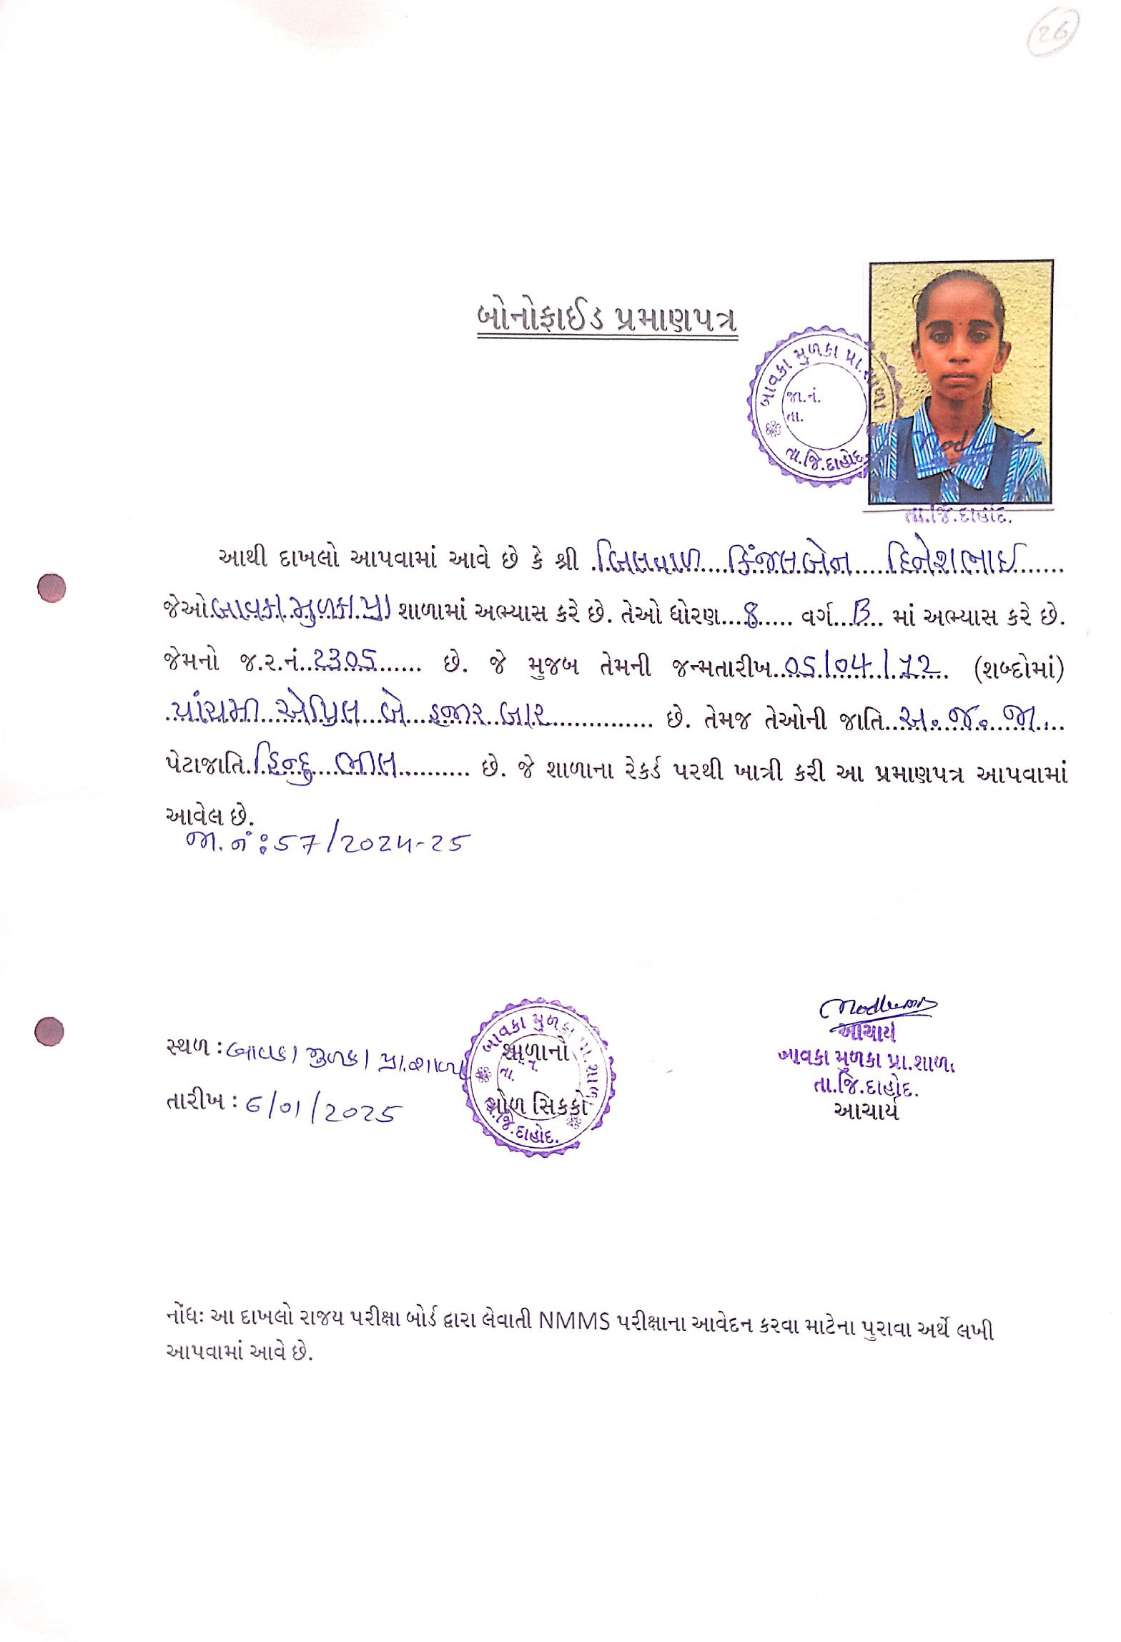 26
બોનોફાઈડ પ્રમાણપત્ર
બાવકા મુળકા પ્રા.શાળા
જા.નં.
તા.
તા.જિ.દાહોદ.
તા.જિ.દાહોદ.
આથી દાખલો આપવામાં આવે છે કે શ્રી .બિલવાળ....કિંજલબેન.....દિનેશભાઈ......
જેઓ.બાવકા.મુળકા.પ્રા શાળામાં અભ્યાસ કરે છે. તેઓ ધોરણ...8..... વર્ગ...B... માં અભ્યાસ કરે છે.
જેમનો જ.ર.નં..2305....... છે. જે મુજબ તેમની જન્મતારીખ..05/04/12.. (શબ્દોમાં)
.પાંચમી...એપ્રિલ...બે...હજાર.બાર.............. છે. તેમજ તેઓની જાતિ..અ.જ.જા....
પેટાજાતિ.હિન્દુ....ભીલ.......... છે. જે શાળાના રેકર્ડ પરથી ખાત્રી કરી આ પ્રમાણપત્ર આપવામાં
આવેલ છે.
જા.નં:57/2024-25
સ્થળ : બાવકા મુળકા પ્રા.શાળા
તારીખ : 6/01/2025
બાવકા મુળકા પ્રા.શાળા
શાળાનો
તા.
ગોળ સિક્કો
તા.જિ.દાહોદ.
આચાર્ય
બાવકા મુળકા પ્રા.શાળા
તા.જિ.દાહોદ.
આચાર્ય
નોંધઃ આ દાખલો રાજય પરીક્ષા બોર્ડ દ્વારા લેવાતી NMMS પરીક્ષાના આવેદન કરવા માટેના પુરાવા અર્થે લખી
આપવામાં આવે છે.